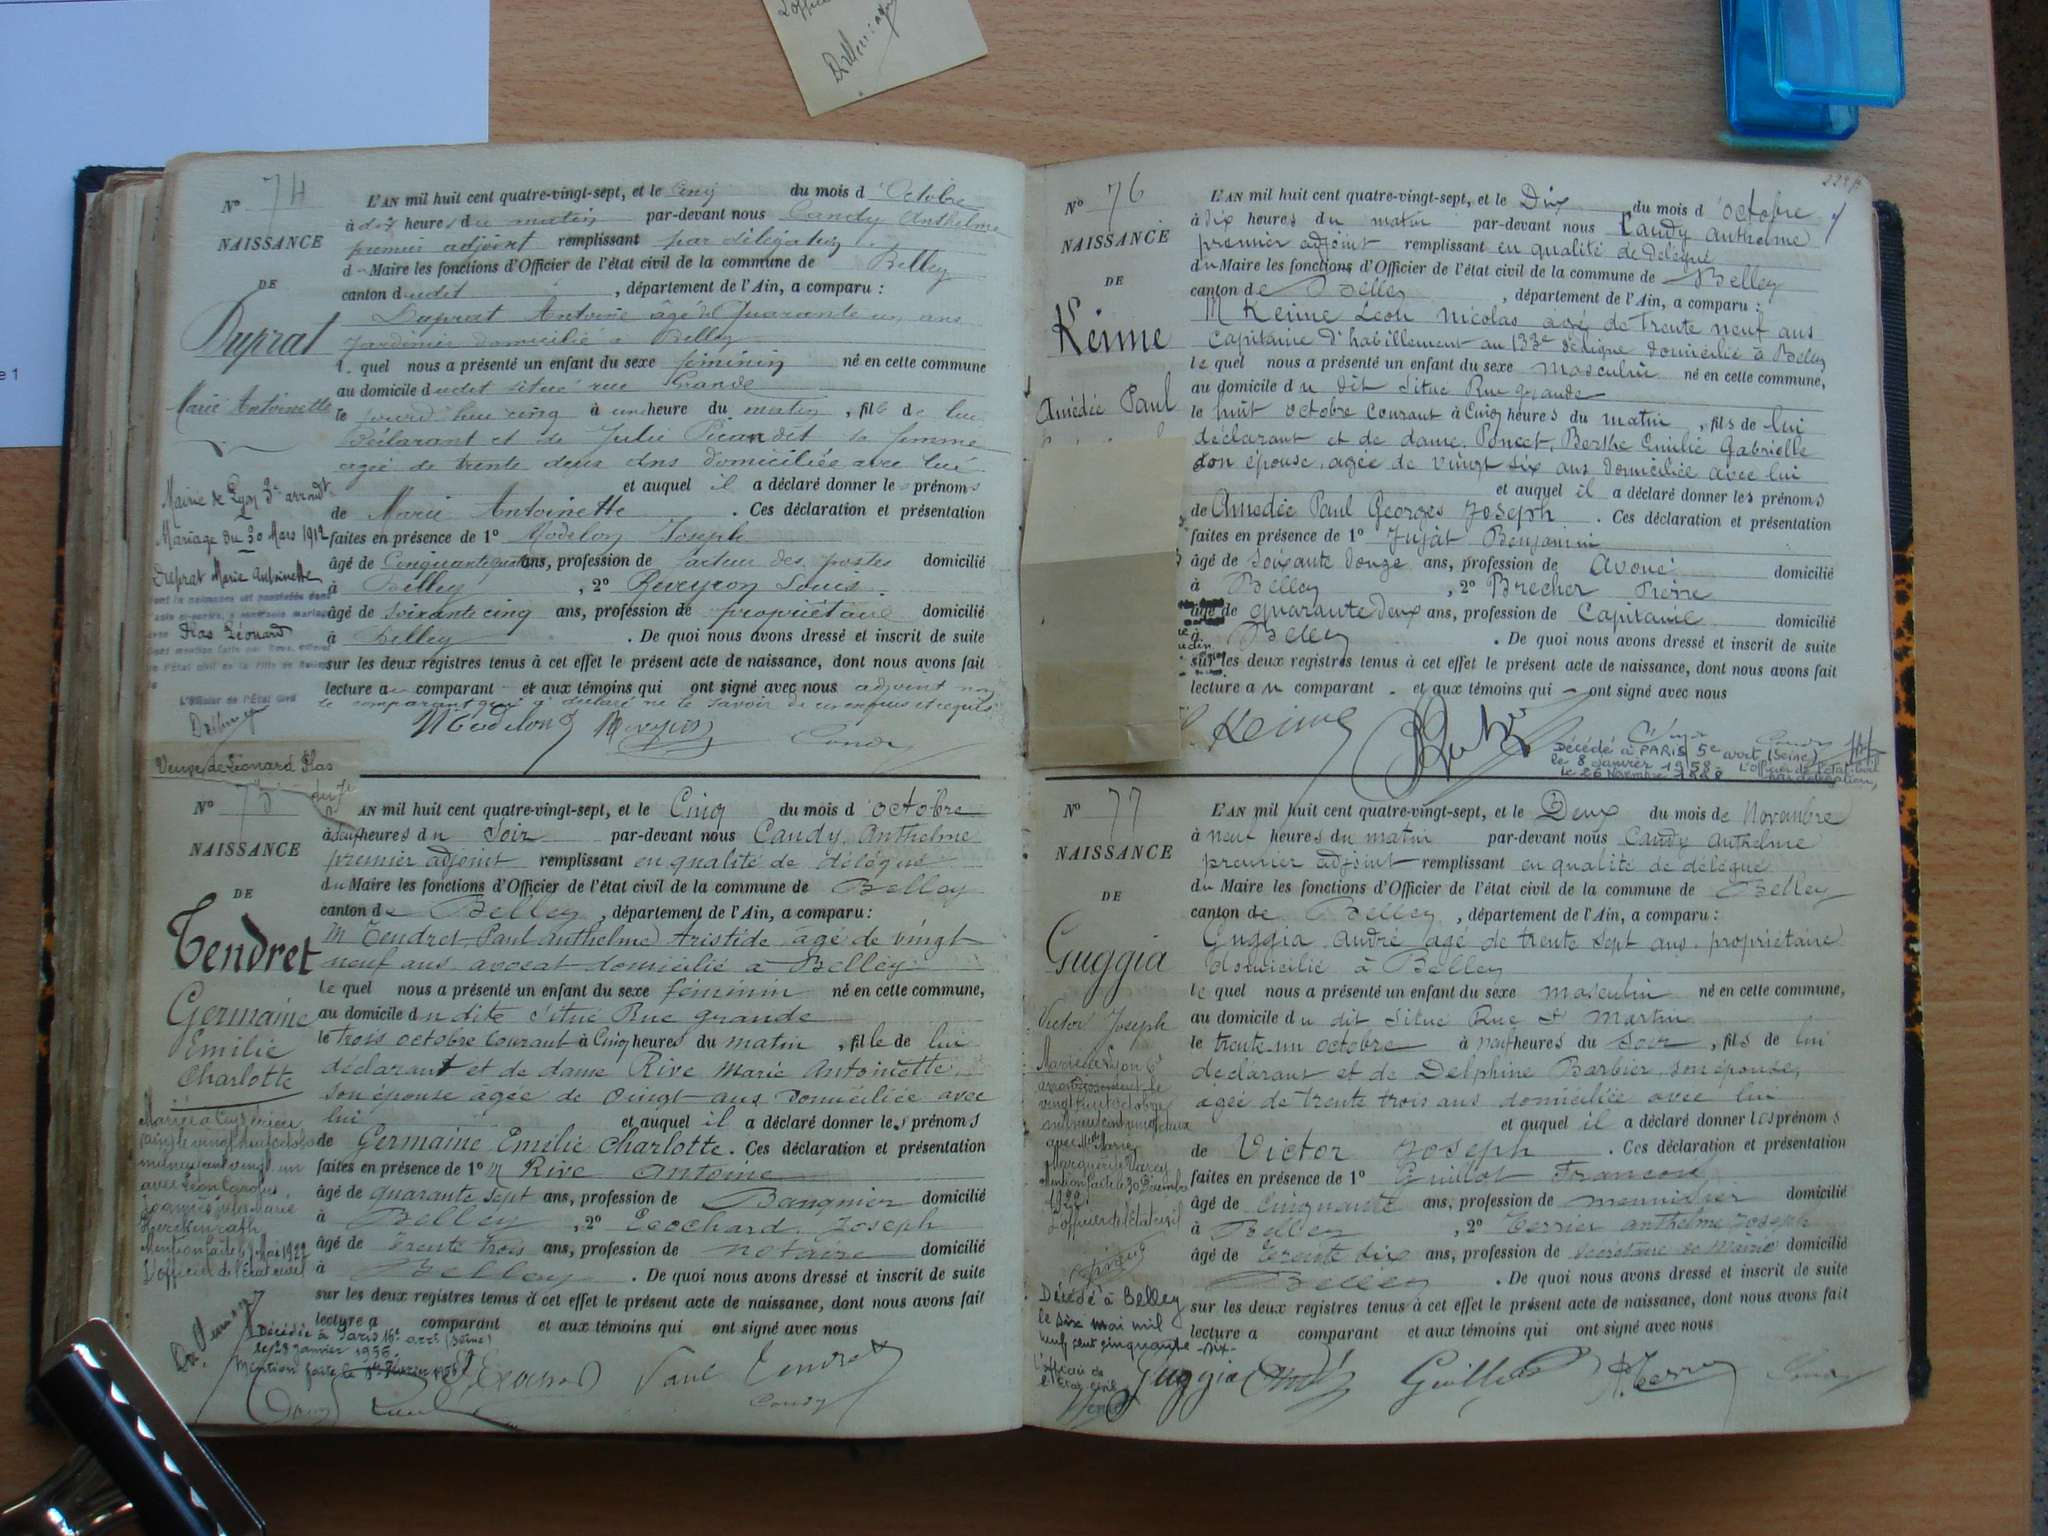 L'office
e 1
N° 74
NAISSANCE
DE
Duprat
Marie Antoinette
L'AN mil huit cent quatre-vingt-sept, et le Cinq du mois d'Octobre
à dix heures du matin par-devant nous Candy Anthelme
premier adjoint remplissant par délégation
du Maire les fonctions d'Officier de l'état civil de la commune de Belley
canton dudit , département de l'Ain, a comparu :
Duprat Antoine âgé de Quarante un ans
jardinier domicilié à Belley
lequel nous a présenté un enfant du sexe féminin né en cette commune
au domicile dudit situé rue Grande
le jourd'hui cinq à une heure du matin , fille de lui
déclarant et de Julie Picandet sa femme
agée de trente deux ans domiciliée avec lui
et auquel il a déclaré donner les prénoms
de Marie Antoinette . Ces déclaration et présentation
faites en présence de 1° Modelon Joseph
âgé de Cinquante quatre ans, profession de facteur des postes domicilié
à Belley , 2° Reveyron Louis
âgé de soixante cinq ans, profession de propriétaire domicilié
à Belley . De quoi nous avons dressé et inscrit de suite
sur les deux registres tenus à cet effet le présent acte de naissance, dont nous avons fait
lecture au comparant et aux témoins qui ont signé avec nous adjoint non
le comparant qui a déclaré ne le savoir de ce enquis et requis
Modelon
Candy
Mairie de Lyon 3e arrondt
Mariage du 30 Mars 1912
Duprat Marie Antoinette
dont la naissance est constatée dans
Plas Léonard
L'Officier de l'État Civil
Veuve de Léonard Plas
N° 75
NAISSANCE
DE
Tendret
Germaine
Emilie
Charlotte
AN mil huit cent quatre-vingt-sept, et le Cinq du mois d'octobre
à heures du Soir par-devant nous Candy Anthelme
premier adjoint remplissant en qualité de délégué
du Maire les fonctions d'Officier de l'état civil de la commune de Belley
canton de Belley , département de l'Ain, a comparu :
M Tendret Paul Anthelme Aristide âgé de vingt
neuf ans avocat domicilié à Belley
lequel nous a présenté un enfant du sexe féminin né en cette commune,
au domicile du dit situé Rue grande
le trois octobre courant à Cinq heures du matin , fille de lui
déclarant et de dame Rive Marie Antoinette
son épouse âgée de vingt ans domiciliée avec
lui et auquel il a déclaré donner les prénoms
de Germaine Emélie Charlotte. Ces déclaration et présentation
faites en présence de 1° M Rive Antoine
âgé de quarante sept ans, profession de Banquier domicilié
à Belley , 2° Ecochard Joseph
âgé de trente trois ans, profession de notaire domicilié
à Belley . De quoi nous avons dressé et inscrit de suite
sur les deux registres tenus à cet effet le présent acte de naissance, dont nous avons fait
lecture a comparant et aux témoins qui ont signé avec nous
Paul Tendret
Candy
Mariée à
vingt neuf octobre
mil neuf cent vingt un
avec Léon
Joannès Jules Marie
Mention faite le Mai 1922
L'officier de l'état civil
Décédée à Paris 16e arrt (Seine)
le 28 Janvier 1956.
Mention faite le Février 1956
N° 76
NAISSANCE
DE
Keime
Amédée Paul
L'AN mil huit cent quatre-vingt-sept, et le Dix du mois d'octobre
à dix heures du matin par-devant nous Candy Anthelme
premier adjoint remplissant en qualité de délégué
du Maire les fonctions d'Officier de l'état civil de la commune de Belley
canton de Belley , département de l'Ain, a comparu :
M Keime Léon Nicolas âgé de trente neuf ans
capitaine d'habillement au 133e de ligne domicilié à Belley
lequel nous a présenté un enfant du sexe masculin né en cette commune,
au domicile du dit situé Rue grande
le huit octobre courant à Cinq heures du matin , fils de lui
déclarant et de dame Poncet Berthe Emilie Gabrielle
son épouse, agée de vingt six ans domiciliée avec lui
et auquel il a déclaré donner les prénoms
de Amédée Paul Georges Joseph . Ces déclaration et présentation
faites en présence de 1° Jujat Benjamin
âgé de soixante douze ans, profession de avoué domicilié
à Belley , 2° Brecher Pierre
âgé de quarante deux ans, profession de Capitaine domicilié
à Belley . De quoi nous avons dressé et inscrit de suite
sur les deux registres tenus à cet effet le présent acte de naissance, dont nous avons fait
lecture au comparant et aux témoins qui ont signé avec nous
Keime
Décédé à PARIS 5e arrt (Seine)
le 8 Janvier 1958
L'officier de l'état civil
par délégation,
N° 77
NAISSANCE
DE
Guggia
Victor Joseph
L'AN mil huit cent quatre-vingt-sept, et le Deux du mois de Novembre
à neuf heures du matin par-devant nous Candy Anthelme
premier adjoint remplissant en qualité de délégué
du Maire les fonctions d'Officier de l'état civil de la commune de Belley
canton de Belley , département de l'Ain, a comparu :
Guggia André agé de trente sept ans propriétaire
domicilié à Belley
lequel nous a présenté un enfant du sexe masculin né en cette commune,
au domicile du dit situé Rue St Martin
le trente-un octobre à neuf heures du Soir , fils de lui
déclarant et de Delphine Barbier son épouse,
agée de trente trois ans domiciliée avec lui
et auquel il a déclaré donner les prénoms
de Victor Joseph . Ces déclaration et présentation
faites en présence de 1° Guillot François
âgé de Cinquante ans, profession de menuisier domicilié
à Belley , 2° Terrier Anthelme Joseph
âgé de trente six ans, profession de secrétaire de Mairie domicilié
Belley . De quoi nous avons dressé et inscrit de suite
sur les deux registres tenus à cet effet le présent acte de naissance, dont nous avons fait
lecture a comparant et aux témoins qui ont signé avec nous
Guggia
Marié à Lyon 6e
arrondissement le
vingt octobre
mil neuf cent vingt deux
avec Marie
Marguerite Varey
Mention faite le 30 Décembre
1922
L'officier de l'état civil
Décédé à Belley
le six mai mil
neuf cent cinquante-six-
L'officier de
l'État civil